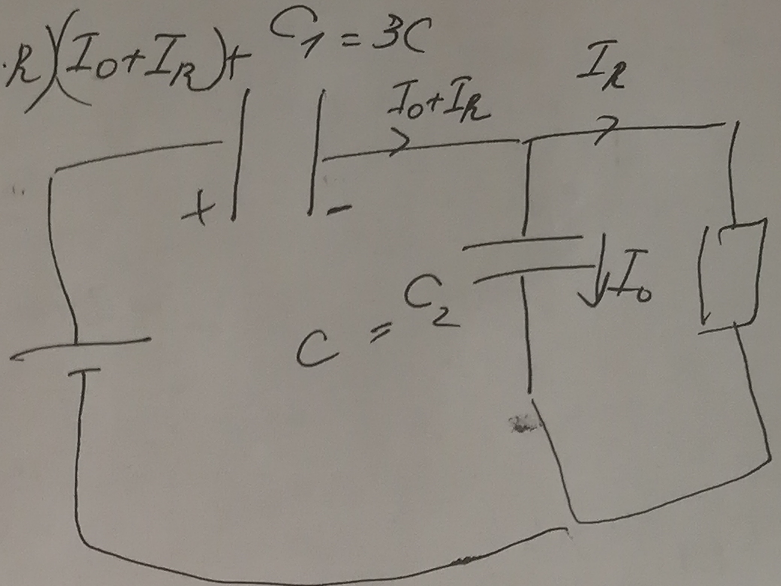 ·R)(I₀+I_R)+
C₁=3C
I₀+I_R
I_R
+
-
C = C₂
I₀